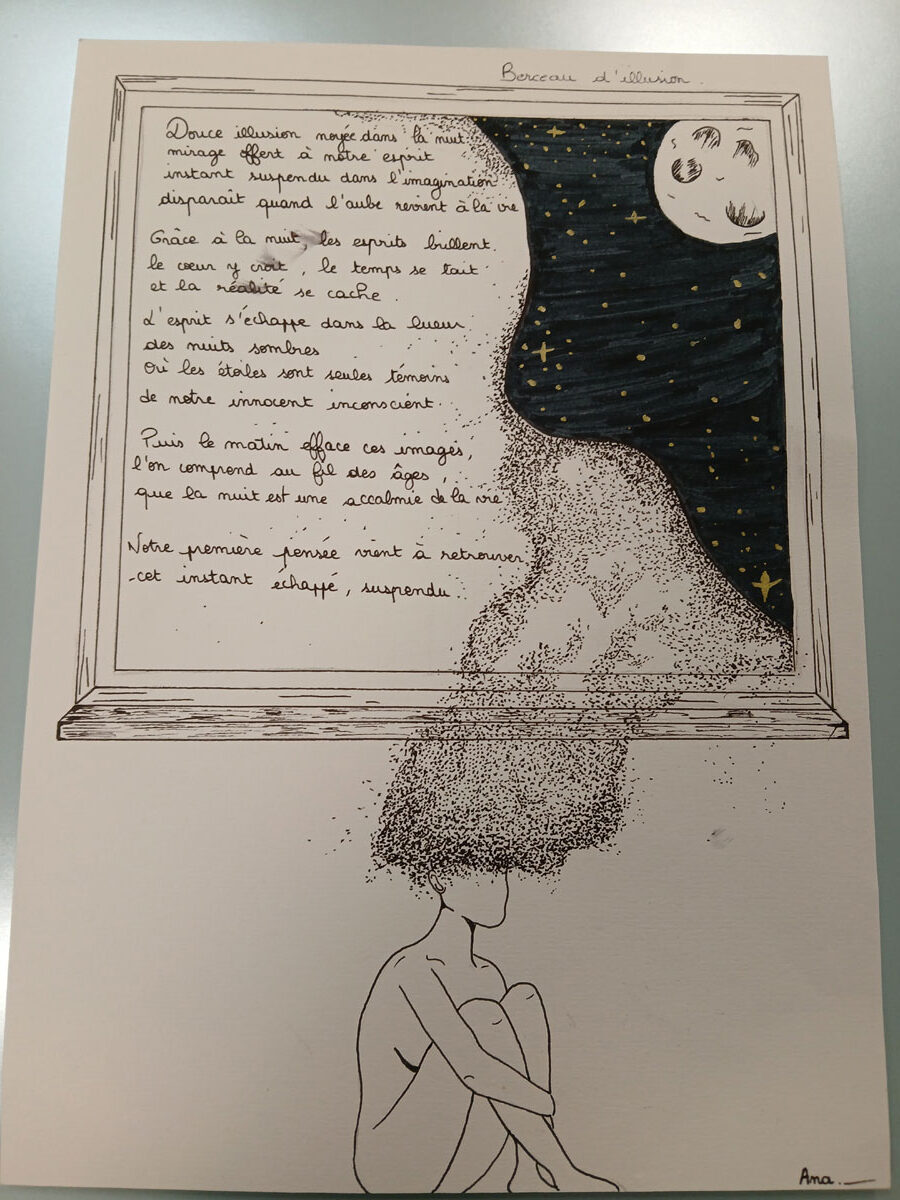 Berceau d'illusion.
Douce illusion noyée dans la nuit
mirage offert à notre esprit
instant suspendu dans l'imagination
disparaît quand l'aube revient à la vie
Grâce à la nuit, les esprits brillent.
le cœur y croit, le temps se tait
et la réalité se cache.
L'esprit s'échappe dans la lueur
des nuits sombres
où les étoiles sont seules témoins
de notre innocent inconscient.
Puis le matin efface ces images,
l'on comprend au fil des âges,
que la nuit est une accalmie de la vie
Notre première pensée vient à retrouver
cet instant échappé, suspendu.
Ana.